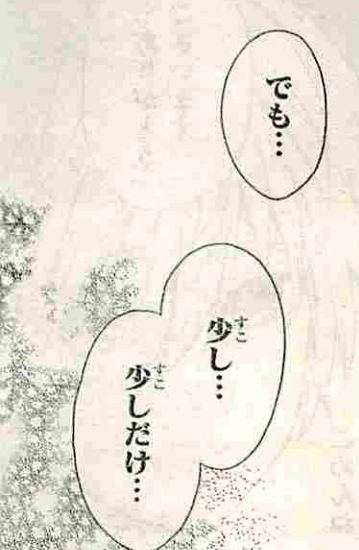 でも…
少し…
少しだけ…